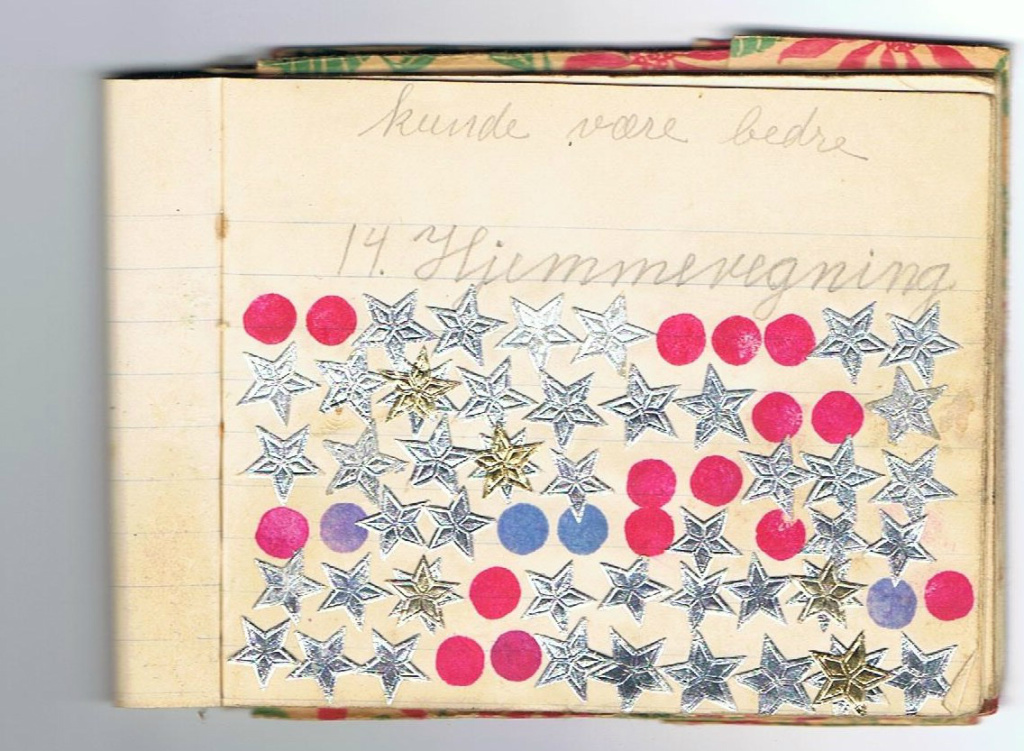 kunde være bedre
14. Hjemmeregning